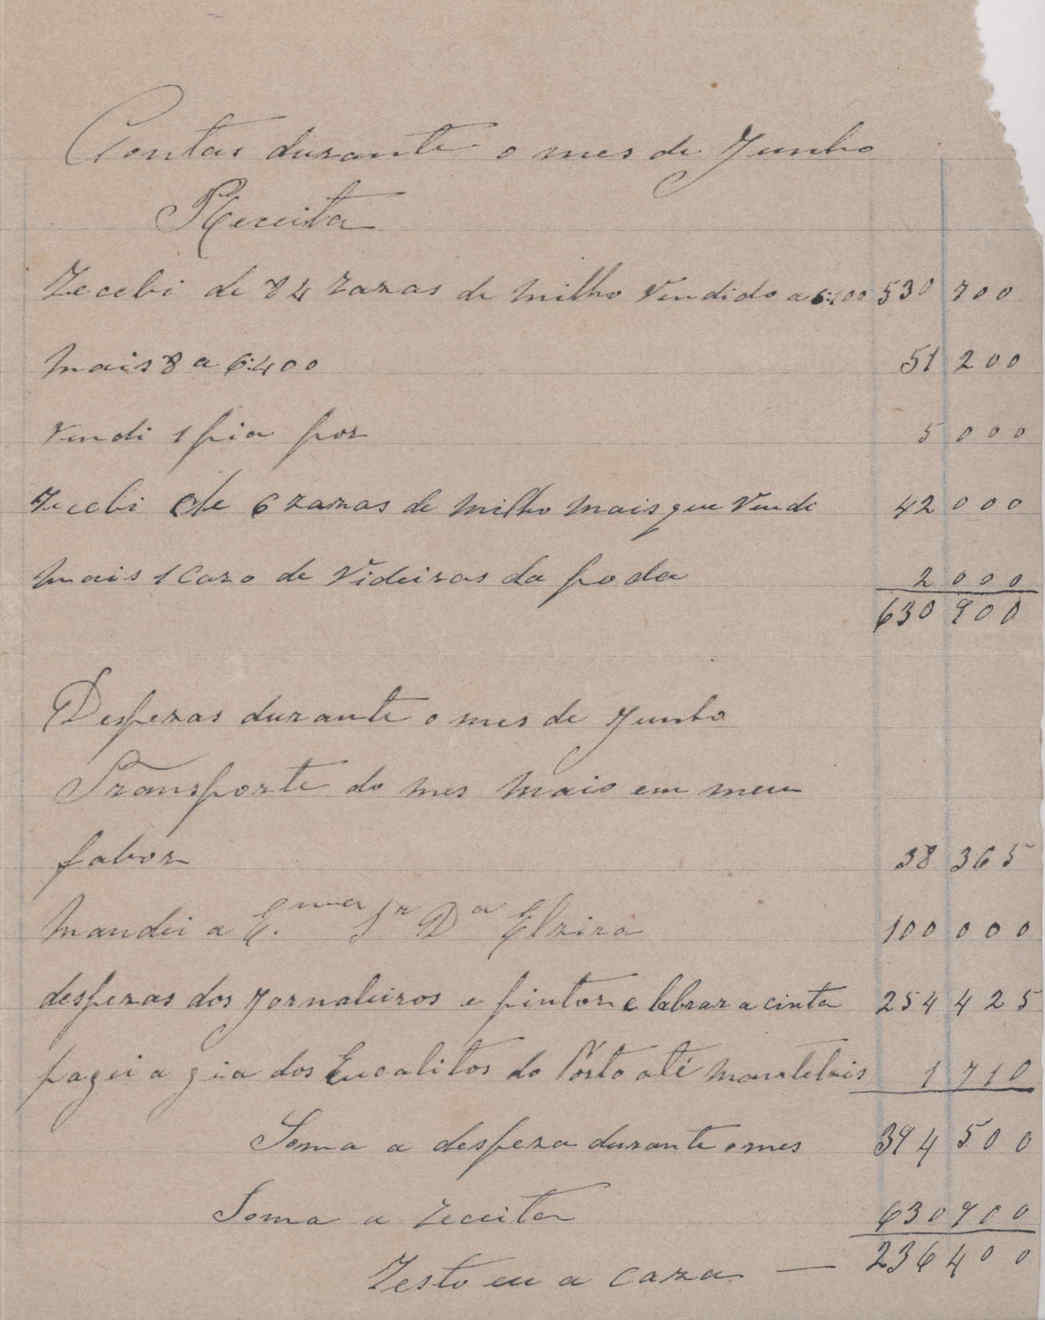 Contas durante o mes de Junho
Receita
Recebi de 84 razas de milho Vendido a 530 700
mais 8 a 6:400 51 200
Vendi 1 pia por 5 000
Recebi de 6 razas de milho mais que Vende 42 000
mais 1 Caro de Videiras da poda 2 000
630 900
Despezas durante o mes de Junho
Transporte do mes maio em meu
fabor 38 365
Mandei a E.ma Sr D.a Elzira 100 000
despezas dos Jornaleiros e pintor e labrar a cinta 254 425
paguei a guia dos Eucalitos do Porto até 1 710
Soma a despeza durante o mes 394 500
Soma a receita 630 900
Resto eu a caza — 236 400